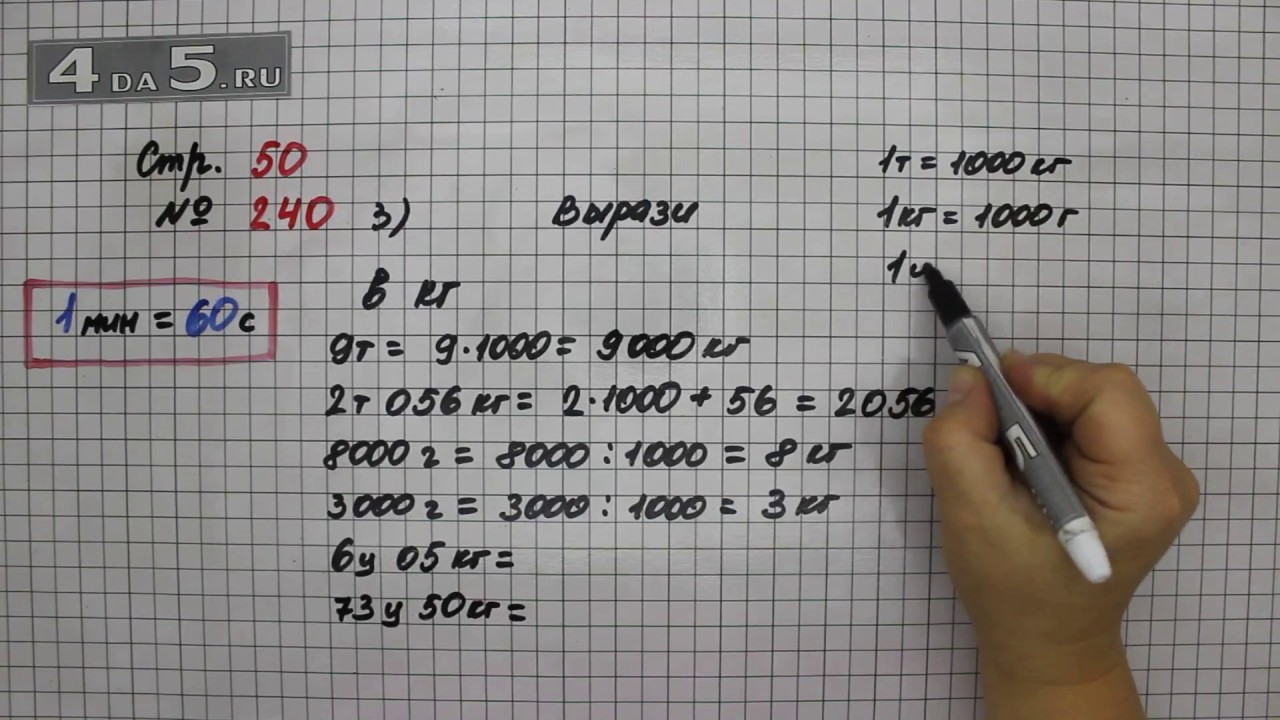 4 DA 5.RU
Стр. 50
№ 240 3) Вырази
1т = 1000 кг
1кг = 1000 г
1ц
1 мин = 60 с
В кг
9т = 9·1000 = 9000 кг
2т 056 кг = 2·1000 + 56 = 2056
8000 г = 8000 : 1000 = 8 кг
3000 г = 3000 : 1000 = 3 кг
6ц 05 кг =
73 ц 50 кг =